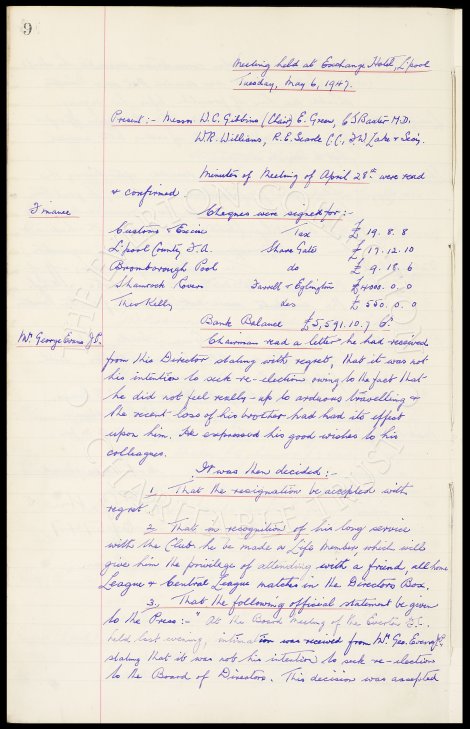 9
Meeting held at Exchange Hotel, L'pool
Tuesday, May 6, 1947.
Present :- Messrs W.C. Gibbins (Chair) E. Green, C S Baxter M.D.
W.R. Williams, R.E. Searle C.C., & Sec'y.
Minutes of Meeting of April 28th were read
& confirmed
Finance
Cheques were signed for :-
Customs & Excise Tax £ 19. 8. 8
L'pool County F.A. Share Gate £ 17. 12. 10
Bromborough Pool do £ 9. 18. 6
Shamrock Rovers Farrell & Eglington £4000. 0. 0
Theo Kelly £ 550. 0. 0
Bank Balance £5,591. 10. 7 Cr.
Mr George Evans J.P.
Chairman read a letter he had received
from this Director stating with regret, that it was not
his intention to seek re-election owing to the fact that
he did not feel really up to arduous travelling &
the recent loss of his brother had had its effect
upon him. He expressed his good wishes to his
colleagues.
It was then decided :-
1. That the resignation be accepted with
regret
2. That in recognition of his long service
with the Club he be made a Life Member, which will
give him the privilege of attending with a friend, all home
League & Central League matches in the Directors Box.
3. That the following official statement be given
to the Press :- " At the Board Meeting of the Everton F.C.
held last evening, intimation was received from Mr Geo. Evans J.P.,
stating that it was not his intention to seek re-election
to the Board of Directors. This decision was accepted
THE EVERTON COLLECTION
CHARITABLE TRUST